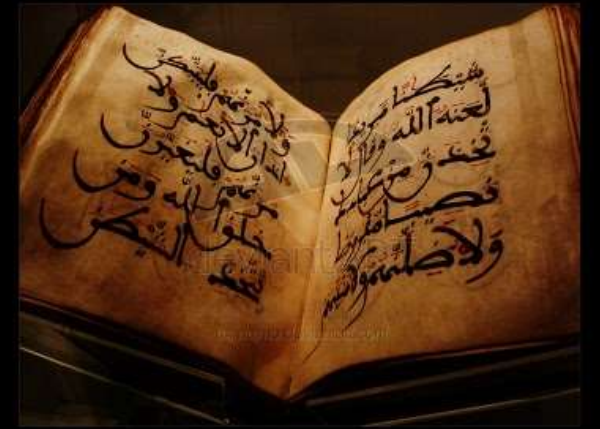 شيطنا مريدا
لعنه الله وقال لا
تخذن من عبادك
نصيبا مفروضا
ولاضلنهم ولامنينهم
ولامرنهم فليبتكن
ءاذان الانعم ولا
مرنهم فليغيرن
خلق الله ومن
يتخذ الشيطن
deviantART